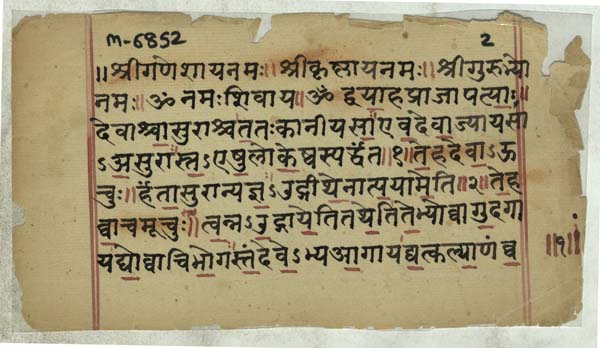 M-6852
2
॥श्रीगणेशायनमः॥श्रीकृष्णायनमः॥श्रीगुरुभ्यो
नमः॥ॐ नमःशिवाय॥ॐ द्वयाहप्राजापत्याः॥
देवाश्चासुराश्चततःकानीयसाएवदेवाज्यायसा
ऽअसुरास्तऽएषुलोकेष्वस्पर्द्धंत॥१॥तेहदेवाऽऊ
चुः॥हंतासुरान्यज्ञऽउद्गीथेनात्ययामेति॥२॥तेह
वाचमूचुः॥त्वन्नऽउद्गायतितथेतितेभ्योवागुदगा
यद्योवाचिभोगस्तंदेवेऽभ्यआगायद्यत्कल्याणंव
॥१॥